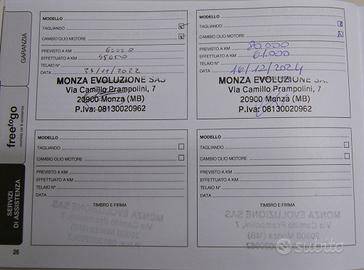 GARANZIA
freetogo
SERVIZI
DI ASSISTENZA
MODELLO
TAGLIANDO
CAMBIO OLIO MOTORE
PREVISTO A KM
EFFETTUATO A KM
TELAIO N°
DATA 23/11/2022
MONZA EVOLUZIONE SAS
Via Camillo Prampolini, 7
20900 Monza (MB)
P.Iva: 08130020962
MODELLO
TAGLIANDO
CAMBIO OLIO MOTORE
PREVISTO A KM 80.000
EFFETTUATO A KM 61.000
TELAIO N°
DATA 16/12/2024
MONZA EVOLUZIONE SAS
Via Camillo Prampolini, 7
20900 Monza (MB)
P.Iva: 08130020962
MODELLO
TAGLIANDO
CAMBIO OLIO MOTORE
PREVISTO A KM
EFFETTUATO A KM
TELAIO N°
DATA
TIMBRO E FIRMA
MODELLO
TAGLIANDO
CAMBIO OLIO MOTORE
PREVISTO A KM
EFFETTUATO A KM
TELAIO N°
DATA
TIMBRO E FIRMA
subito